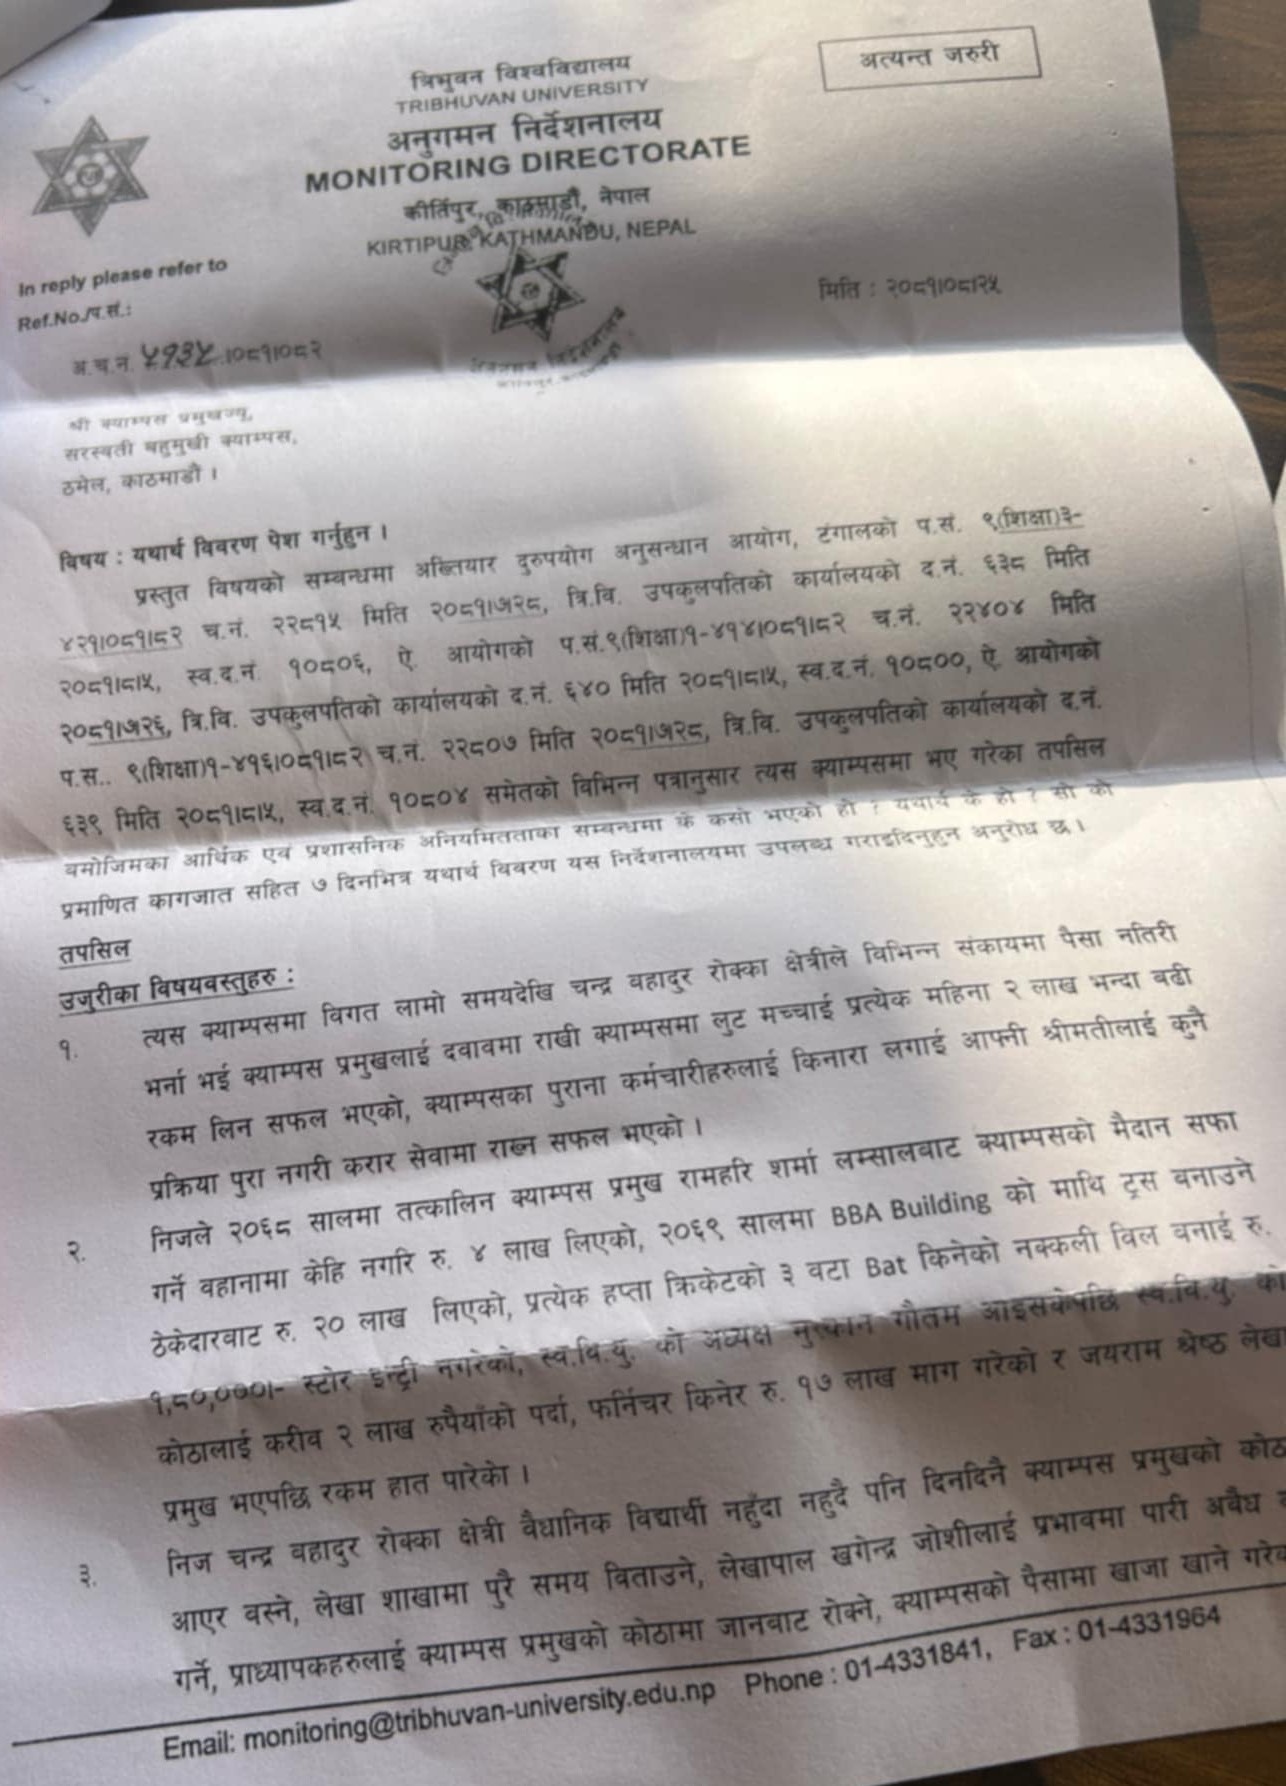 अत्यन्त जरुरी
त्रिभुवन विश्वविद्यालय
TRIBHUVAN UNIVERSITY
अनुगमन निर्देशनालय
MONITORING DIRECTORATE
कीर्तिपुर, काठमाडौं, नेपाल
KIRTIPUR, KATHMANDU, NEPAL
In reply please refer to
Ref.No./प.सं.:
मिति : २०८१।०८।२५
अ.च.न. ५१३५ ।०८१।०८२
श्री क्याम्पस प्रमुखज्यू,
सरस्वती बहुमुखी क्याम्पस,
ठमेल, काठमाडौं ।
विषय : यथार्थ विवरण पेश गर्नुहुन ।
प्रस्तुत विषयको सम्बन्धमा अख्तियार दुरुपयोग अनुसन्धान आयोग, टंगालको प.सं. ९(शिक्षा)३-
४२१।०८१।८२ च.नं. २२८१५ मिति २०८१।७।२८, त्रि.वि. उपकुलपतिको कार्यालयको द.नं. ६३८ मिति
२०८१।८।५, स्व.द.नं. १०८०६, ऐ. आयोगको प.सं.९(शिक्षा)१-४१४।०८१।८२ च.नं. २२४०४ मिति
२०८१।७।२६, त्रि.वि. उपकुलपतिको कार्यालयको द.नं. ६४० मिति २०८१।८।५, स्व.द.नं. १०८००, ऐ. आयोगको
प.स.. ९(शिक्षा)१-४१६।०८१।८२ च.नं. २२८०७ मिति २०८१।७।२८, त्रि.वि. उपकुलपतिको कार्यालयको द.नं.
६३९ मिति २०८१।८।५, स्व.द.नं. १०८०४ समेतको विभिन्न पत्रानुसार त्यस क्याम्पसमा भए गरेका तपसिल
बमोजिमका आर्थिक एवं प्रशासनिक अनियमितताका सम्बन्धमा के कसो भएको हो ? यथार्थ के हो ? सो को
प्रमाणित कागजात सहित ७ दिनभित्र यथार्थ विवरण यस निर्देशनालयमा उपलब्ध गराइदिनुहुन अनुरोध छ।
तपसिल
उजुरीका विषयवस्तुहरु :
१. त्यस क्याम्पसमा विगत लामो समयदेखि चन्द्र वहादुर रोक्का क्षेत्रीले विभिन्न संकायमा पैसा नतिरी
भर्ना भई क्याम्पस प्रमुखलाई दवावमा राखी क्याम्पसमा लुट मच्चाई प्रत्येक महिना २ लाख भन्दा बढी
रकम लिन सफल भएको, क्याम्पसका पुराना कर्मचारीहरुलाई किनारा लगाई आफ्नी श्रीमतीलाई कुनै
प्रक्रिया पुरा नगरी करार सेवामा राख्न सफल भएको ।
२. निजले २०६८ सालमा तत्कालिन क्याम्पस प्रमुख रामहरि शर्मा लम्सालबाट क्याम्पसको मैदान सफा
गर्ने वहानामा केहि नगरि रु. ४ लाख लिएको, २०६९ सालमा BBA Building को माथि ट्रस बनाउने
ठेकेदारवाट रु. २० लाख लिएको, प्रत्येक हप्ता क्रिकेटको ३ वटा Bat किनेको नक्कली विल वनाई रु.
१,८०,०००।- स्टोर इन्ट्री नगरेको, स्व.वि.यु. को अध्यक्ष मुस्कान गौतम आइसकेपछि स्व.वि.यु. को
कोठालाई करीव २ लाख रुपैयाँको पर्दा, फर्निचर किनेर रु. १७ लाख माग गरेको र जयराम श्रेष्ठ लेखा
प्रमुख भएपछि रकम हात पारेको ।
३. निज चन्द्र वहादुर रोक्का क्षेत्री वैधानिक विद्यार्थी नहुँदा नहुदै पनि दिनदिनै क्याम्पस प्रमुखको
आएर वस्ने, लेखा शाखामा पुरै समय विताउने, लेखापाल खगेन्द्र जोशीलाई प्रभावमा पारी अवैध
गर्ने, प्राध्यापकहरुलाई क्याम्पस प्रमुखको कोठामा जानवाट रोक्ने, क्याम्पसको पैसामा खाजा खाने
Email: monitoring@tribhuvan-university.edu.np Phone : 01-4331841, Fax : 01-4331964